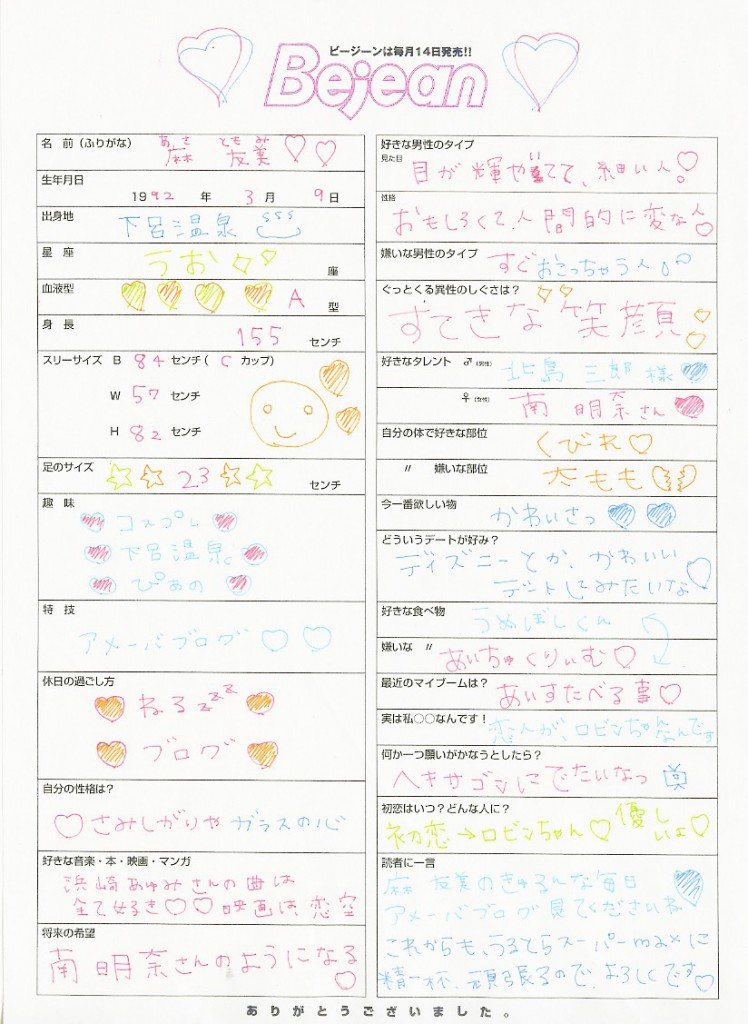 ビージーンは毎月14日発売!!
Bejean
名 前(ふりがな)
あさ ともみ
麻 友美
生年月日
1992 年 3月 9日
出身地
下呂温泉
星 座
うお 座
血液型
A 型
身 長
155 センチ
スリーサイズ B 84 センチ( C カップ)
W 57 センチ
H 82 センチ
足のサイズ
23 センチ
趣 味
コスプレ
下呂温泉
ぴあの
特 技
アメーバブログ
休日の過ごし方
ねるzzzz
ブログ
自分の性格は?
さみしがりや ガラスの心
好きな音楽・本・映画・マンガ
浜崎あゆみさんの曲は
全て好き 映画は、恋空
将来の希望
南明奈さんのようになる
好きな男性のタイプ
見た目
目が輝やいてて、細い人
性格
おもしろくて、人間的に変な人
嫌いな男性のタイプ
すぐおこっちゃう人
ぐっとくる異性のしぐさは?
すてきな笑顔
好きなタレント ♂(男性) 北島三郎様
♀(女性) 南 明奈さん
自分の体で好きな部位
くびれ
〃 嫌いな部位
太もも
今一番欲しい物
かわいさっ
どういうデートが好み?
ディズニーとか、かわいい
デートしてみたいな
好きな食べ物
うめぼしくん
嫌いな 〃
あいちゅくりぃむ
最近のマイブームは?
あいすたべる事
実は私○○なんです!
恋人が、ロビンちゃんなんです
何か一つ願いがかなうとしたら?
ヘキサゴンにでたいなっ
初恋はいつ?どんな人に?
初恋→ロビンちゃん 優しいよ
読者に一言
麻 友美のきゅるんな毎日
アメーバブログ見てくださいね
これからも、うるてらスーパーmaxに
精一杯、頑張るので、よろしくです
ありがとうございました。